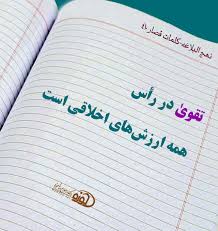 نهج البلاغه کلمات قصار ۴۱۰
تقویٰ در رأس
همه ارزش‌های اخلاقی است